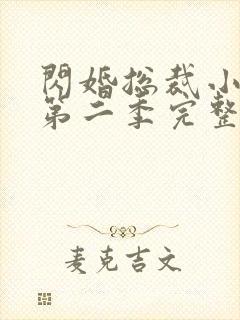 閃婚總裁小
第二季完整
麦克吉文